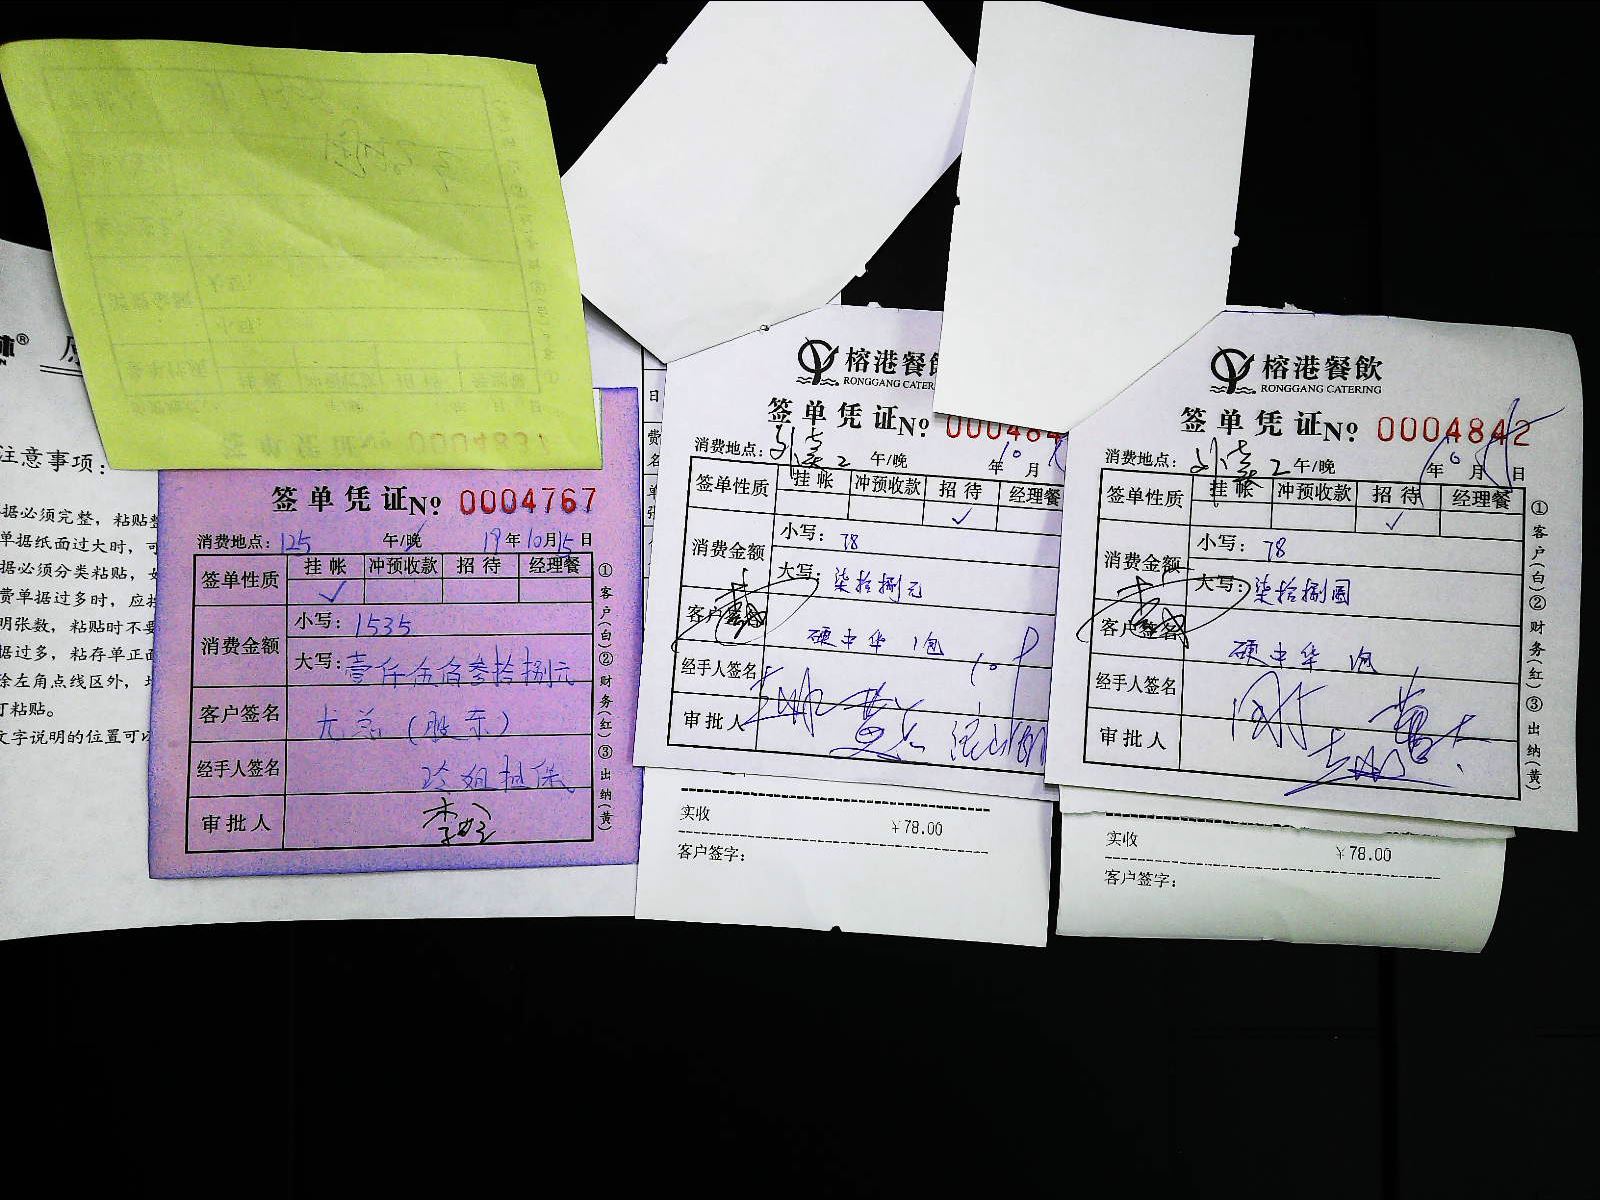 注意事项：
据必须完整，粘贴整
单据纸面过大时，可
据必须分类粘贴，如
费单据过多时，应按
明张数，粘贴时不要
据过多，粘存单正面
除左角点线区外，均
打粘贴。
文字说明的位置可以
签单凭证 № 0004767
消费地点：125 午/晚 19年10月15日
签单性质 挂帐 冲预收款 招待 经理餐
✓
消费金额 小写：1535
大写：壹仟伍佰叁拾捌元
客户签名 尤总（股东）
经手人签名 玲姐担保
审批人
①客户(白)②财务(红)③出纳(黄)
榕港餐飲
RONGGANG CATERING
签单凭证 № 000484
消费地点： 2 午/晚 年10月
签单性质 挂帐 冲预收款 招待 经理餐
✓
消费金额 小写：78
大写：柒拾捌元
客户签名 硬中华 1包
经手人签名
审批人
实收 ￥78.00
客户签字：
榕港餐飲
RONGGANG CATERING
签单凭证 № 0004842
消费地点： 2 午/晚 年 月 日
签单性质 挂帐 冲预收款 招待 经理餐
✓
消费金额 小写：78
大写：柒拾捌圆
客户签名 硬中华 1包
经手人签名
审批人
①客户(白)②财务(红)③出纳(黄)
实收 ￥78.00
客户签字：